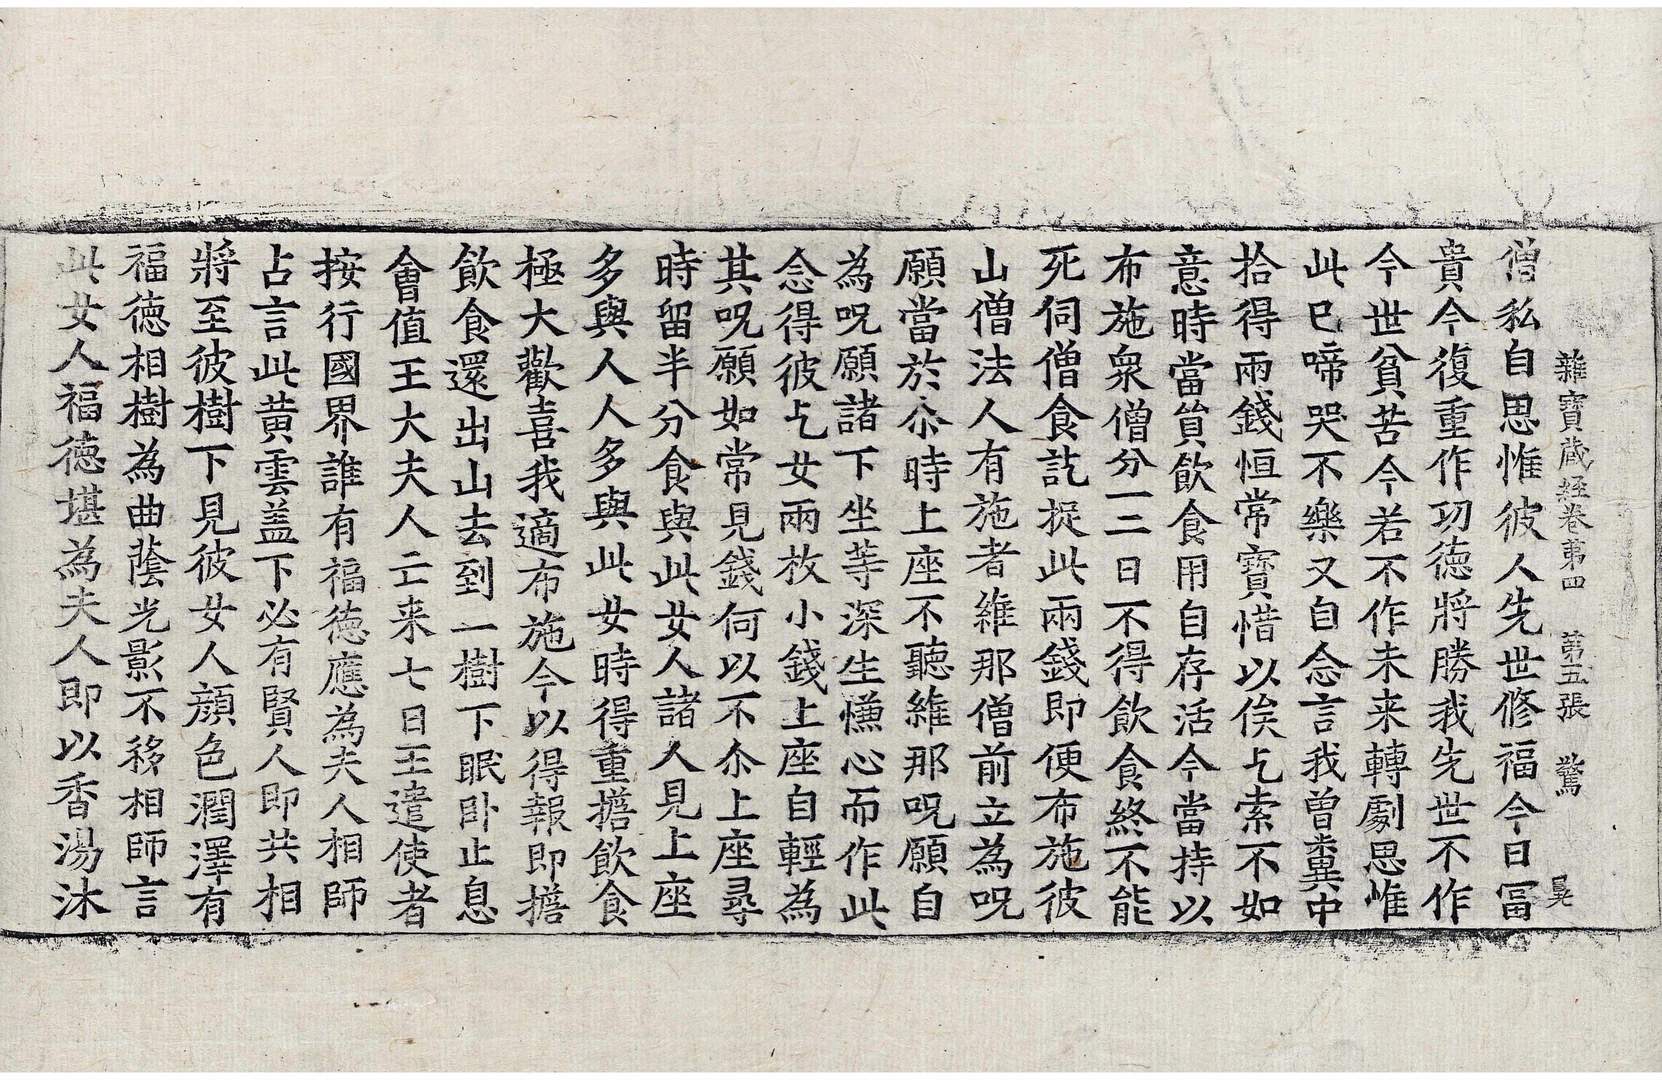 雜寶藏經卷第四　第五張　驚
僧私自思惟彼人先世修福今日冨
貴今復重作功德將勝我先世不作
今世貧苦今若不作未来轉劇思惟
此已啼哭不樂又自念言我曾糞中
拾得兩錢恒常寶惜以俟乞索不如
意時當貿飲食用自存活今當持以
布施衆僧分一二日不得飲食終不能
死伺僧食訖捉此兩錢即便布施彼
山僧法人有施者維那僧前立為呪
願當於尒時上座不聽維那呪願自
為呪願諸下坐等深生慊心而作此
念得彼乞女兩枚小錢上座自輕為
其呪願如常見錢何以不尒上座尋
時留半分食與此女人諸人見上座
多與人人多與此女時得重擔飲食
極大歡喜我適布施今以得報即擔
飲食還出山去到一樹下眠卧止息
會值王大夫人亡来七日王遣使者
按行國界誰有福德應為夫人相師
占言此黄雲盖下必有賢人即共相
將至彼樹下見彼女人顔色潤澤有
福德相樹為曲蔭光影不移相師言
此女人福德堪為夫人即以香湯沐